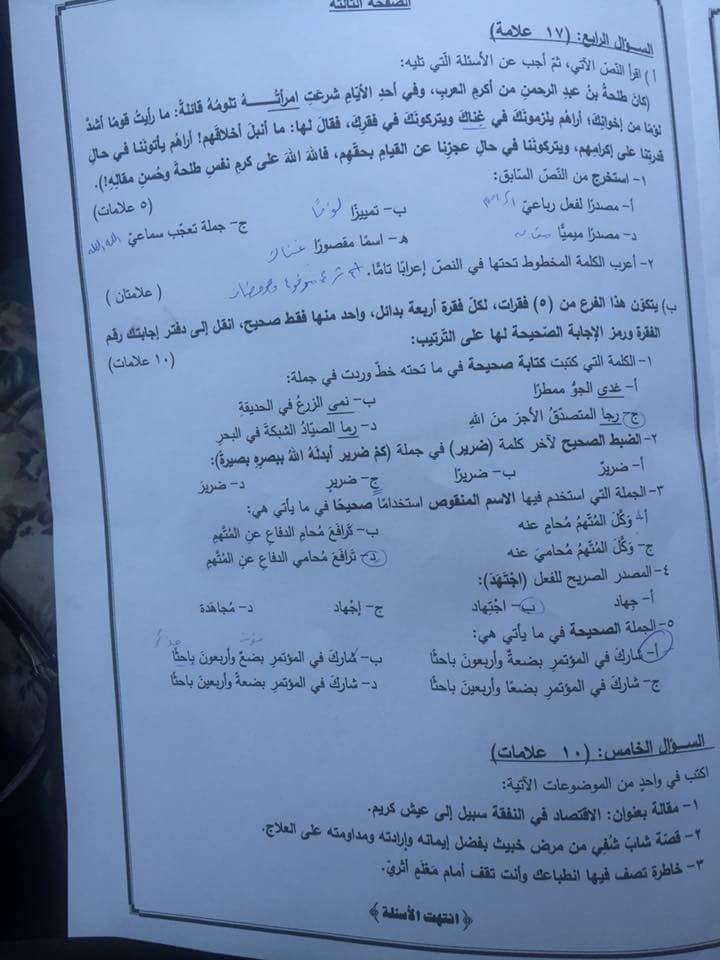 الصفحة الثالثة
السؤال الرابع: (١٧ علامة)
أ) اقرأ النّصّ الآتي، ثمّ أجب عن الأسئلة الّتي تليه:
(كان طلحةُ بنُ عبدِ الرحمنِ من أكرمِ العربِ، وفي أحدِ الأيّامِ شرعَتِ امرأتُـــــهُ تلومُهُ قائلةً: ما رأيتُ قومًا أشدَّ
لؤمًا من إخوانِكَ؛ أراهُم يلزمونَكَ في غِناكَ ويتركونَكَ في فقرِكَ، فقالَ لها: ما أنبلَ أخلاقَهُم! أراهُم يأتونَنا في حالِ
قدرتِنا على إكرامِهِم، ويتركونَنا في حالِ عجزِنا عن القيامِ بحقِّهم، فاللهَ اللهَ على كرمِ نفسِ طلحةَ وحُسنِ مقالِهِ!).
١- استخرج من النّصّ السّابق: (٥ علامات)
أ- مصدرًا لفعل رباعيّ ب- تمييزًا لؤمًا ج- جملة تعجّب سماعيّ الله الله
د- مصدرًا ميميًّا هـ- اسمًا مقصورًا غناك
٢- أعرب الكلمة المخطوط تحتها في النصّ إعرابًا تامًّا. (علامتان)
ب) يتكوّن هذا الفرع من (٥) فقرات، لكلّ فقرة أربعة بدائل، واحد منها فقط صحيح، انقل إلى دفتر إجابتك رقم
الفقرة ورمز الإجابة الصّحيحة لها على التّرتيب: (١٠ علامات)
١- الكلمة التي كتبت كتابة صحيحة في ما تحته خطّ وردت في جملة:
أ- غدى الجوُّ ممطرًا ب- نمى الزرعُ في الحديقةِ
ج- رجا المتصدّقُ الأجرَ منَ اللهِ د- رما الصيّادُ الشبكةَ في البحرِ
٢- الضبط الصحيح لآخر كلمة (ضرير) في جملة (كمْ ضرير أبدلَهُ اللهُ ببصرِهِ بصيرةً):
أ- ضريرٌ ب- ضريرًا ج- ضريرٍ د- ضريرَ
٣- الجملة التي استخدم فيها الاسم المنقوص استخدامًا صحيحًا في ما يأتي هي:
أ- وَكَّلَ المُتّهمُ محامٍ عنه ب- تَرافَعَ مُحامٍ الدفاعِ عنِ المُتّهمِ
ج- وَكَّلَ المُتّهمُ محاميَ عنه د- تَرافَعَ مُحامي الدفاعِ عنِ المُتّهمِ
٤- المصدر الصريح للفعل (اجْتَهَدَ):
أ- جِهاد ب- اجْتِهاد ج- إجْهاد د- مُجاهَدة
٥- الجملة الصحيحة في ما يأتي هي:
أ- شاركَ في المؤتمرِ بضعةٌ وأربعونَ باحثًا ب- شاركَ في المؤتمرِ بضعٌ وأربعونَ باحثًا
ج- شاركَ في المؤتمرِ بضعًا وأربعينَ باحثًا د- شاركَ في المؤتمرِ بضعةً وأربعينَ باحثًا
السؤال الخامس: (١٠ علامات)
اكتب في واحدٍ من الموضوعات الآتية:
١- مقالة بعنوان: الاقتصاد في النفقة سبيل إلى عيش كريم.
٢- قصّة شابّ شُفي من مرض خبيث بفضل إيمانه وإرادته ومداومته على العلاج.
٣- خاطرة تصف فيها انطباعك وأنت تقف أمام مَعْلَمٍ أثريّ.
﴿ انتهت الأسئلة ﴾